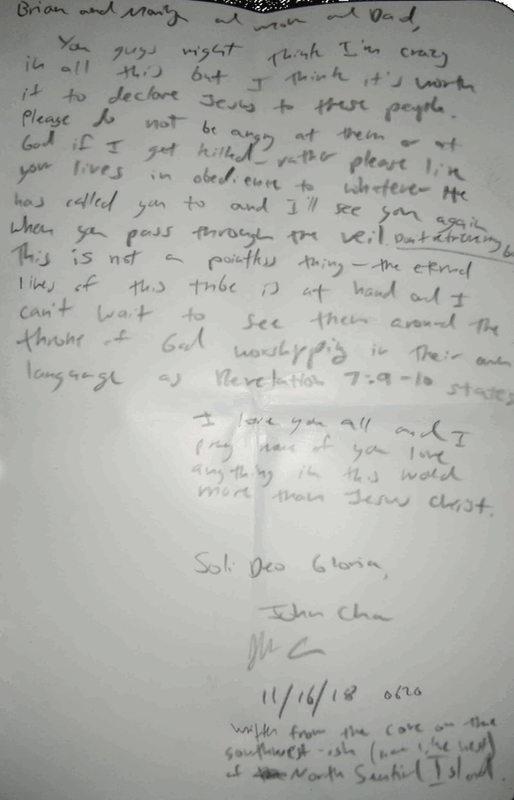 Brian and and mom and Dad,
You guys might think I'm crazy
in all this but I think it's worth
it to declare Jesus to these people.
Please do not be angry at them or at
God if I get killed – rather please live
your lives in obedience to whatever He
has called you to and I'll see you again
when you pass through the veil.
This is not a pointless thing – the eternal
lives of this tribe is at hand and I
can't wait to see them around the
throne of God worshipping in their own
language as Revelation 7:9-10 states
I love you all and I
pray none of you love
anything in this world
more than Jesus Christ.
Soli Deo Gloria,
John Chau
11/16/18 0620
written from the cove on the
southwest-ish (more like west)
of North Sentinel Island.